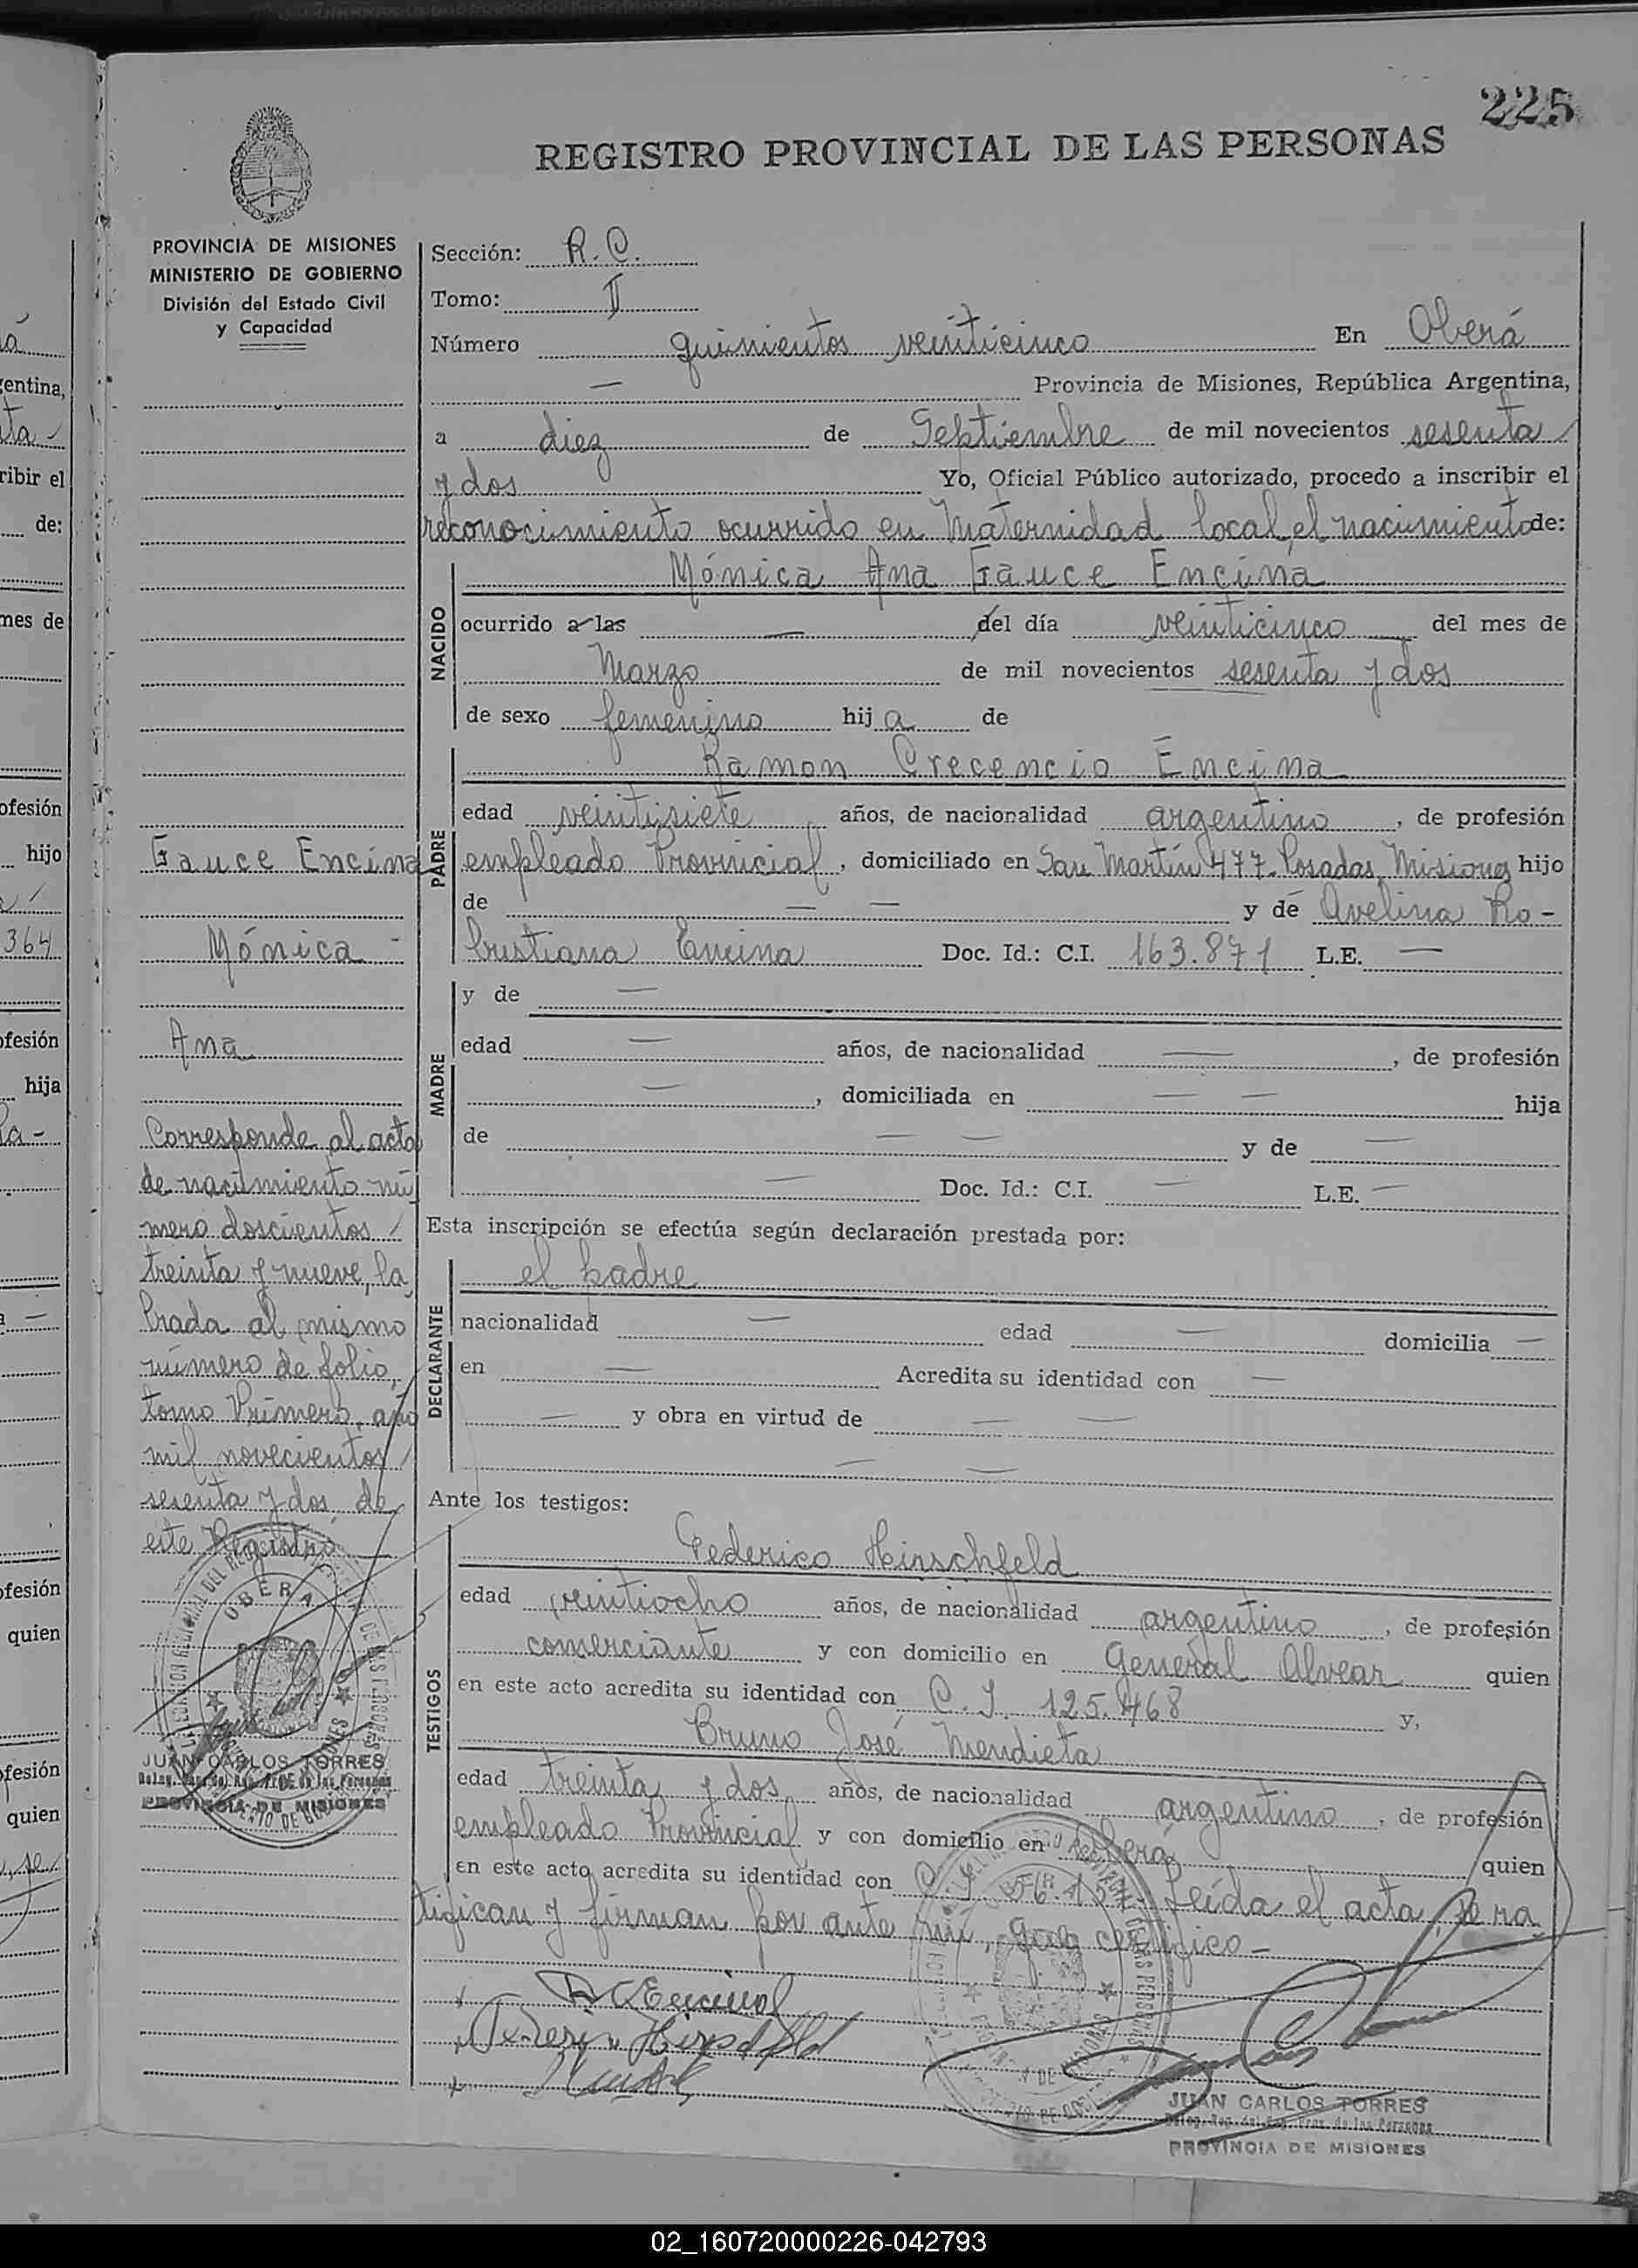 225
REGISTRO PROVINCIAL DE LAS PERSONAS
PROVINCIA DE MISIONES
MINISTERIO DE GOBIERNO
División del Estado Civil
y Capacidad
Sección: R.C.
Tomo: II
Número quinientos veinticinco En Oberá
— Provincia de Misiones, República Argentina,
a diez de Septiembre de mil novecientos sesenta
y dos Yo, Oficial Público autorizado, procedo a inscribir el
reconocimiento ocurrido en Maternidad local, el nacimiento de:
NACIDO
Mónica Ana Gauce Encina
ocurrido a las — del día veinticinco del mes de
Marzo de mil novecientos sesenta y dos
de sexo femenino hija de
PADRE
Ramon Crecencio Encina
edad veintisiete años, de nacionalidad argentino, de profesión
empleado Provincial, domiciliado en San Martín 477. Posadas, Misiones hijo
de — — y de Avelina Ro-
bustiana Encina Doc. Id.: C.I. 163.871 L.E. —
MADRE
y de —
edad — años, de nacionalidad —, de profesión
—, domiciliada en — — hija
de — — y de —
— Doc. Id.: C.I. — L.E. —
Esta inscripción se efectúa según declaración prestada por:
DECLARANTE
el padre
nacionalidad — edad — domicilia —
en — Acredita su identidad con —
— y obra en virtud de — —
— —
Ante los testigos:
TESTIGOS
Federico Hirschfeld
edad veintiocho años, de nacionalidad argentino, de profesión
comerciante y con domicilio en General Alvear quien
en este acto acredita su identidad con C.I. 125.468 y,
Bruno José Mendieta
edad treinta y dos años, de nacionalidad argentino, de profesión
empleado Provincial y con domicilio en Oberá quien
en este acto acredita su identidad con C.I. Leída el acta, la ra
tifican y firman por ante mí, que certifico-
JUAN CARLOS TORRES
PROVINCIA DE MISIONES
Gauce Encina
Mónica -
Ana
Corresponde al acta
de nacimiento nú
mero doscientos
treinta y nueve, la
brada al mismo
número de folio,
tomo Primero, año
mil novecientos
sesenta y dos, de
este Registro
OBERA
JUAN CARLOS TORRES
PROVINCIA DE MISIONES
entina,
ribir el
de:
mes de
ofesión
hijo
364
ofesión
hija
ofesión
quien
ofesión
quien
02_160720000226-042793